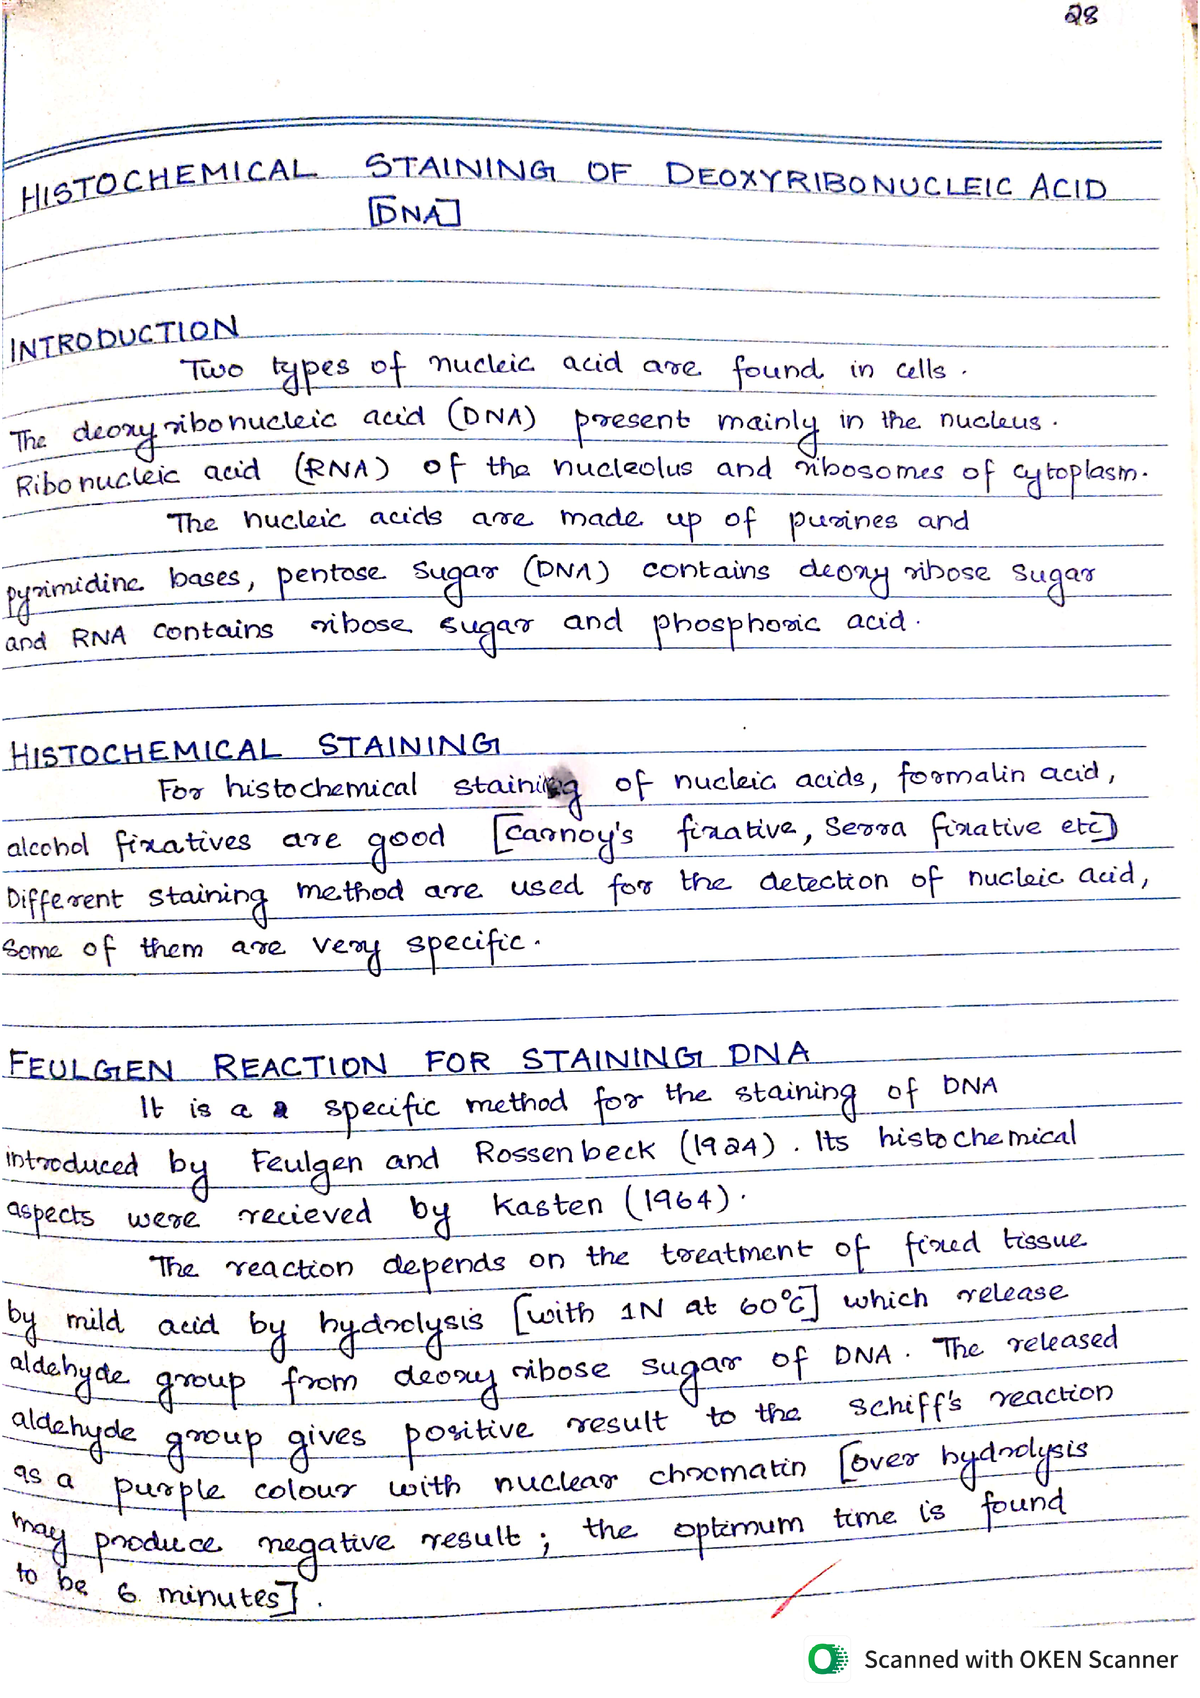 28
HISTOCHEMICAL STAINING OF DEOXYRIBONUCLEIC ACID
[DNA]
INTRODUCTION
Two types of nucleic acid are found in cells.
The deoxyribonucleic acid (DNA) present mainly in the nucleus.
Ribonucleic acid (RNA) of the nucleolus and ribosomes of cytoplasm.
The nucleic acids are made up of purines and
pyrimidine bases, pentose sugar (DNA) contains deoxyribose sugar
and RNA contains ribose sugar and phosphoric acid.
HISTOCHEMICAL STAINING
For histochemical staining of nucleic acids, formalin acid,
alcohol fixatives are good [Carnoy's fixative, Serra fixative etc]
Different staining method are used for the detection of nucleic acid,
Some of them are very specific.
FEULGEN REACTION FOR STAINING DNA
It is a specific method for the staining of DNA
introduced by Feulgen and Rossenbeck (1924). Its histochemical
aspects were recieved by Kasten (1964).
The reaction depends on the treatment of fixed tissue
by mild acid by hydrolysis [with 1N at 60°C] which release
aldehyde group from deoxyribose sugar of DNA. The released
aldehyde group gives positive result to the schiff's reaction
as a purple colour with nuclear chromatin [over hydrolysis
may produce negative result; the optimum time is found
to be 6 minutes].
Scanned with OKEN Scanner